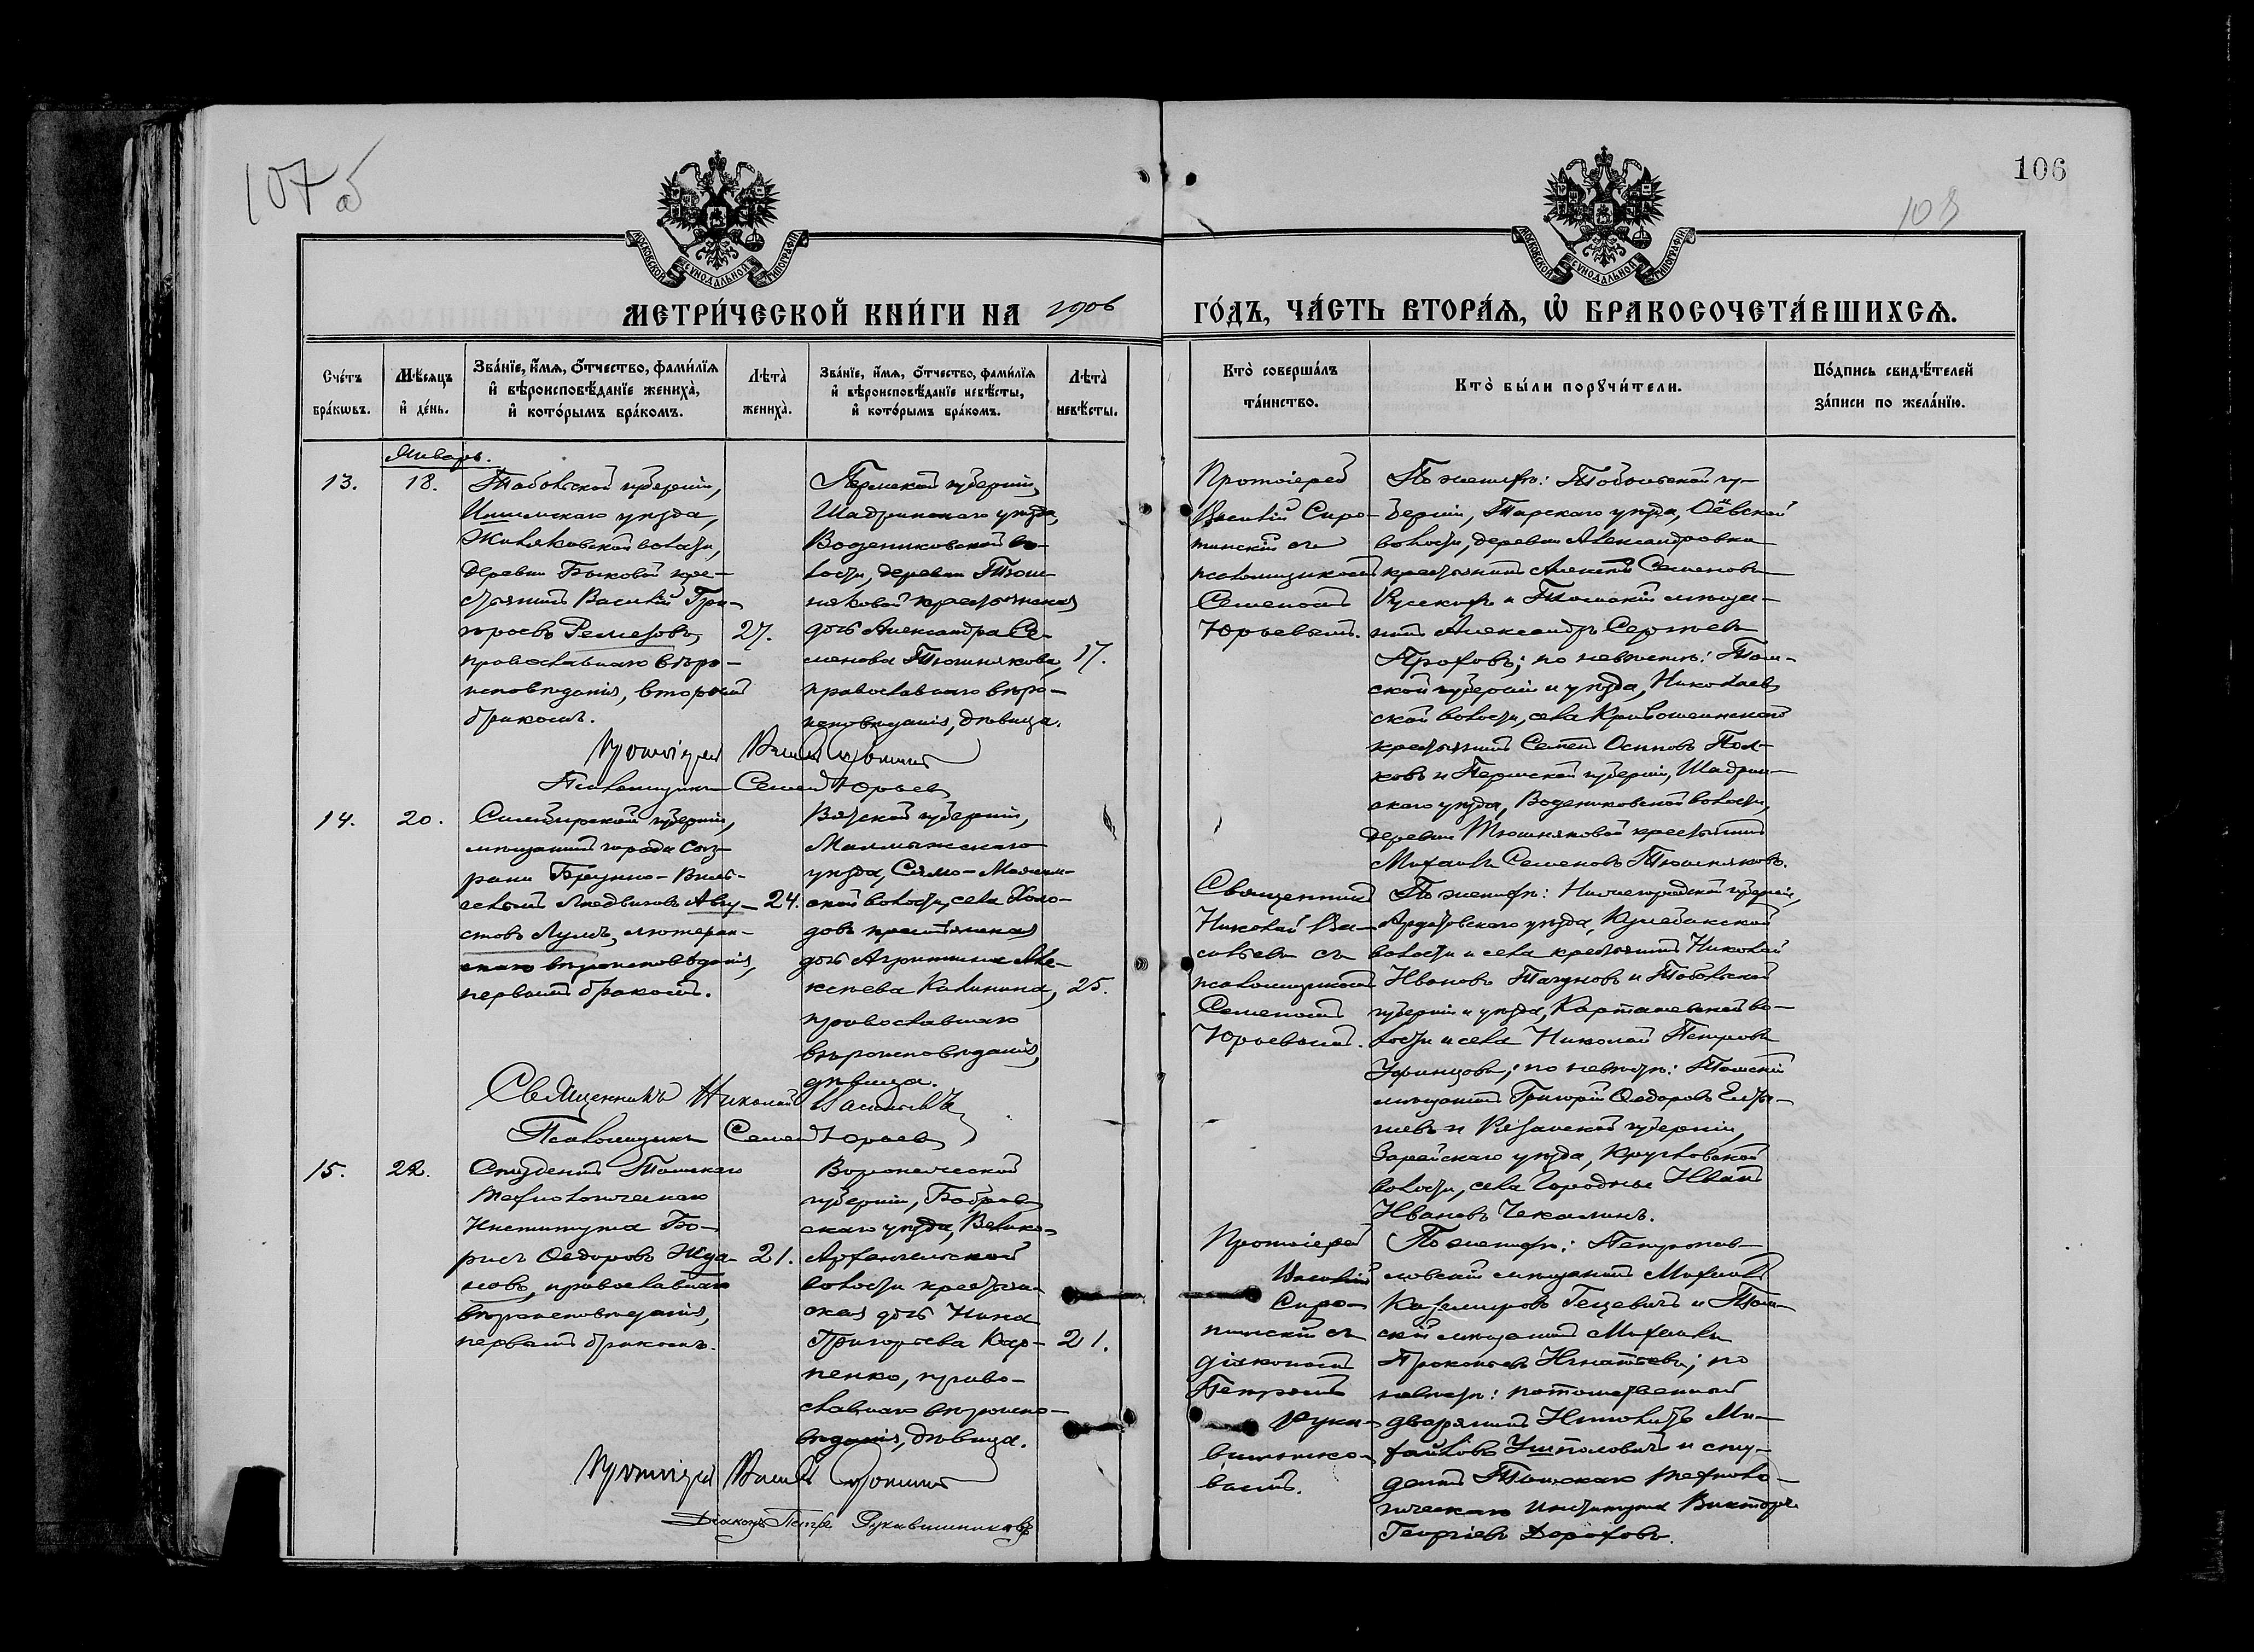 107 б
106
108
МЕТРИ́ЧЕСКОЙ КНИ́ГИ НА 1906
ГО́ДЪ, ЧА́СТЬ ВТОРА́Ѧ, Ѡ҆ БРАКОСОЧЕТА́ВШИХСѦ.
Сче́тъ бра́кѡвъ.
Мѣ́сяцъ и҆ де́нь.
Зва́нїе, и҆́мѧ, ѻ҆́тчество, фами́лїѧ
и҆ вѣроисповѣ́данїе жениха̀,
и҆ кото́рымъ бра́комъ.
Лѣта̀ жениха̀.
Зва́нїе, и҆́мѧ, ѻ҆́тчество, фами́лїѧ
и҆ вѣроисповѣ́данїе невѣ́сты,
и҆ кото́рымъ бра́комъ.
Лѣта̀ невѣ́сты.
Кто̀ соверша́лъ
та́инство.
Кто̀ бы́ли порꙋчи́тели.
По́дпись свидѣ́телей
за́писи по жела́нїю.
Январь.
13.
18.
Тобольской губерніи,
Ишимскаго уѣзда,
Жиляковской волости,
деревни Быковой кре-
стьянинъ Василій Гри-
горьевъ Ремезовъ,
православнаго вѣро-
исповѣданія, вторымъ
бракомъ.
27.
Пермской губерніи,
Шадринскаго уѣзда,
Водениковской во-
лости, деревни Тюш-
няковой крестьянская
дочь Александра Се-
менова Тюшнякова,
православнаго вѣро-
исповѣданія, дѣвица.
17.
Протоіерей
Василій Сиро-
тинскій съ
псаломщикомъ
Семеномъ
Юрьевымъ.
По женихѣ: Тобольской гу-
берніи, Тарскаго уѣзда,
волости, деревни Александровки
крестьянинъ Алексѣй Семеновъ
и Томскій мѣща-
нинъ Александръ Сергѣевъ
Трофовъ; по невѣстѣ: Том-
ской губерніи и уѣзда, Николаев
ской волости, села Кривошеинскаго
крестьянинъ Семенъ Осиповъ Пол-
ковъ и Пермской губерніи, Шадрин-
скаго уѣзда, Водениковской волости,
деревни Тюшняковой крестьянинъ
Михаилъ Семеновъ Тюшняковъ.
Протоіерей Василій Сиротинскій
Псаломщикъ Семенъ Юрьевъ
14.
20.
Симбирской губерніи,
мѣщанинъ города Сыз-
рани Бруно-Виль-
гельмъ Людвиговъ Авгу-
стовъ Лумъ, лютеран-
скаго вѣроисповѣданія,
первымъ бракомъ.
24.
Вятской губерніи,
Малмыжскаго
уѣзда, Сямо-
ской волости, села
довъ крестьянская
дочь Агриппина Але-
ксѣева Калинина,
православнаго
вѣроисповѣданія,
дѣвица.
25.
Священникъ
Николай Ва-
сильевъ съ
псаломщикомъ
Семеномъ
Юрьевымъ.
По женихѣ: Нижегородской губерніи,
Ардатовскаго уѣзда, Кулебакской
волости и села крестьянинъ Николай
Ивановъ Тагуновъ и Тобольской
губерніи и уѣзда, Карташевской во-
лости и села Николай Петровъ
Уфинцовъ; по невѣстѣ: Томскій
мѣщанинъ Григорій Ѳедоровъ
и Рязанской губерніи,
Зарайскаго уѣзда, Кругловской
волости, села Городище Иванъ
Ивановъ Чекалинъ.
Священникъ Николай Васильевъ
Псаломщикъ Семенъ Юрьевъ
15.
22.
Студентъ Томскаго
Технологическаго
Института Бо-
рисъ Ѳедоровъ Жда-
новъ, православнаго
вѣроисповѣданія,
первымъ бракомъ.
21.
Воронежской
губерніи, Бобров
скаго уѣзда, Велико-
Архангельской
волости крестьян-
ская дочь Нина
Григорьева Кар-
пенко, право-
славнаго вѣроиспо-
вѣданія, дѣвица.
21.
Протоіерей
Василій
Сиро-
тинскій съ
діакономъ
Петромъ
Рука-
вишнико-
вымъ.
По женихѣ: Петропав-
ловскій мѣщанинъ Михаилъ
Казиміровъ Гецевичъ и Том-
скій мѣщанинъ Михаилъ
Прокопьевъ Игнатьевъ; по
невѣстѣ: потомственный
дворянинъ Ми-
хайловъ и сту-
дентъ Томскаго Техноло-
гическаго Института Викторъ
Георгіевъ Дороховъ.
Протоіерей Василій Сиротинскій
Діаконъ Петръ Рукавишниковъ